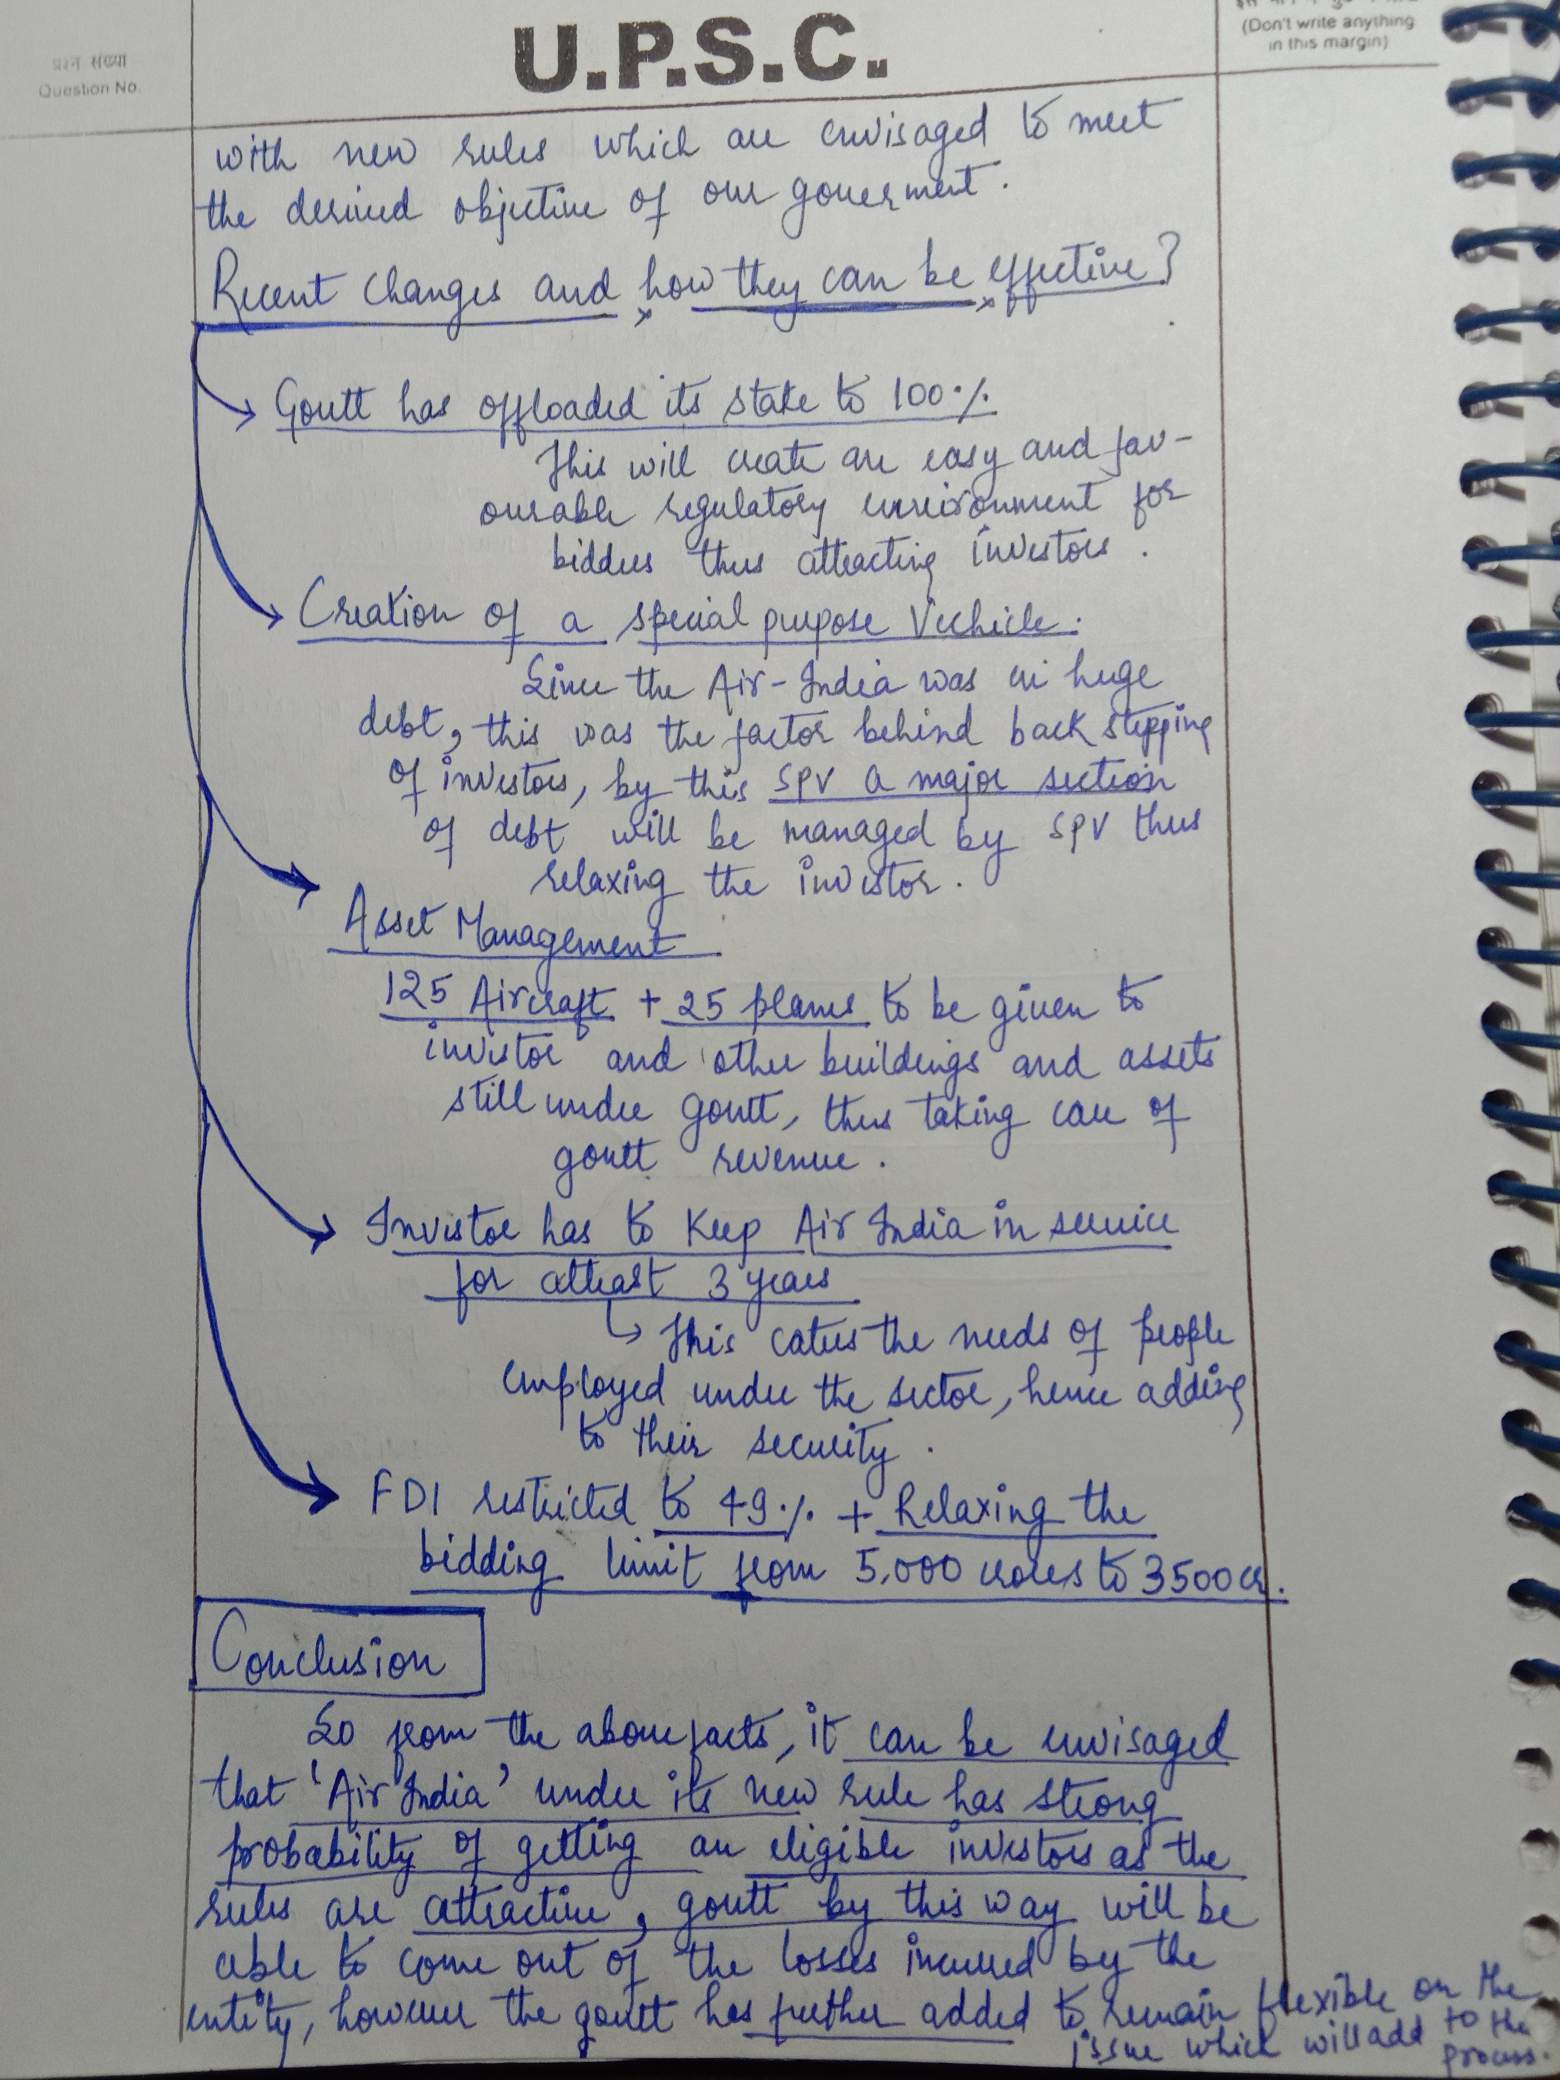 U.P.S.C.
(Don't write anything
in this margin)
प्रश्न संख्या
Question No.
with new rules which are envisaged to meet
the desired objective of our goverment.
Recent changes and how they can be effective?
Govtt has offloaded its stake to 100%
This will create an easy and fav-
ourable regulatory environment for
bidders thus attracting investors.
Creation of a special purpose Vechicle.
Since the Air-India was in huge
debt, this was the factor behind back stepping
of investors, by this SPV a major section
of debt will be managed by SPV thus
relaxing the investor.
Asset Management
125 Aircraft + 25 planes to be given to
investor and other buildings and assets
still under govtt, thus taking care of
govtt revenue.
Investor has to keep Air India in service
for atleast 3 years
This caters the needs of people
employed under the sector, hence adding
to their security.
FDI restricted to 49% + Relaxing the
bidding limit from 5,000 crores to 3500 cr.
Conclusion
So from the above facts, it can be envisaged
that 'Air India' under its new rule has strong
probability of getting an eligible investors as the
rules are attractive, govtt by this way will be
able to come out of the losses incurred by the
entity, however the govtt has further added to remain flexible on the
issue which will add to the
process.